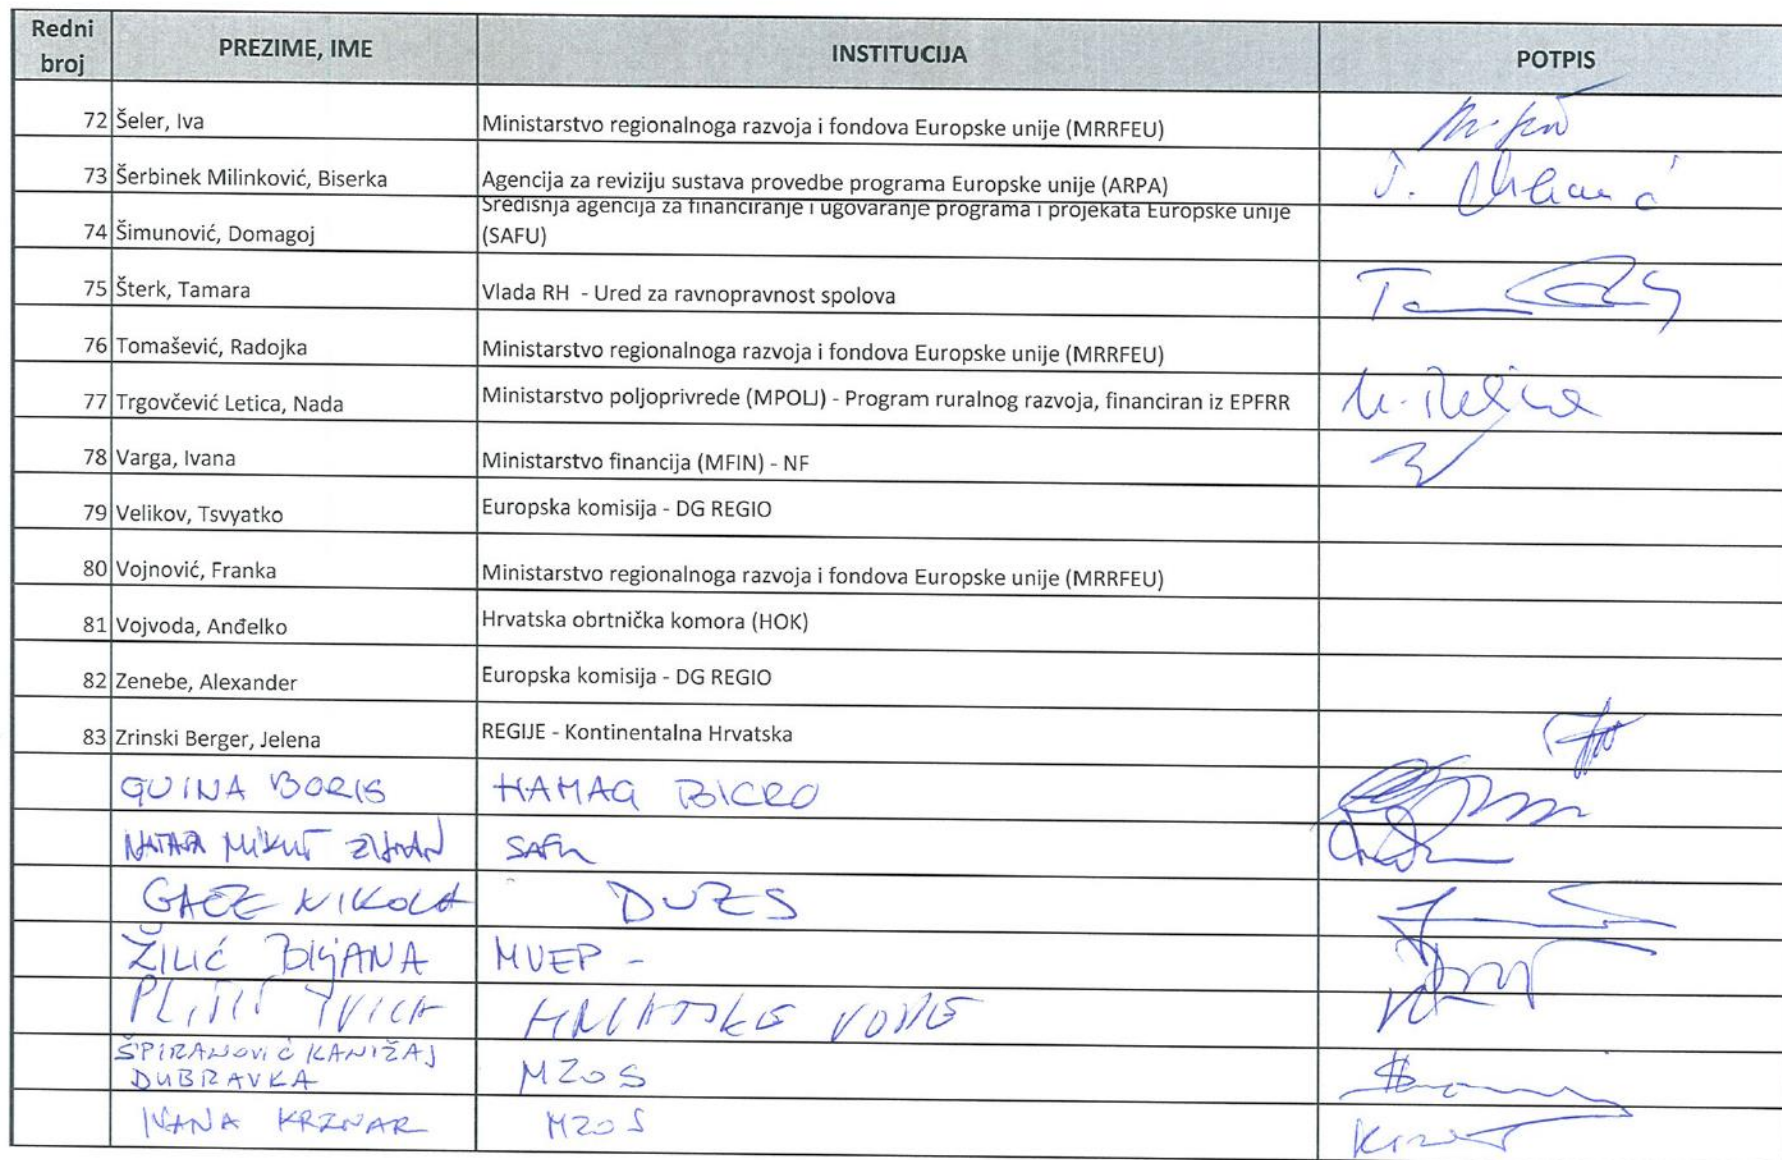 Redni broj PREZIME, IME INSTITUCIJA POTPIS
72 Šeler, Iva Ministarstvo regionalnoga razvoja i fondova Europske unije (MRRFEU)
73 Šerbinek Milinković, Biserka Agencija za reviziju sustava provedbe programa Europske unije (ARPA)
74 Šimunović, Domagoj Središnja agencija za financiranje i ugovaranje programa i projekata Europske unije
(SAFU)
75 Šterk, Tamara Vlada RH - Ured za ravnopravnost spolova
76 Tomašević, Radojka Ministarstvo regionalnoga razvoja i fondova Europske unije (MRRFEU)
77 Trgovčević Letica, Nada Ministarstvo poljoprivrede (MPOLJ) - Program ruralnog razvoja, financiran iz EPFRR
78 Varga, Ivana Ministarstvo financija (MFIN) - NF
79 Velikov, Tsvyatko Europska komisija - DG REGIO
80 Vojnović, Franka Ministarstvo regionalnoga razvoja i fondova Europske unije (MRRFEU)
81 Vojvoda, Anđelko Hrvatska obrtnička komora (HOK)
82 Zenebe, Alexander Europska komisija - DG REGIO
83 Zrinski Berger, Jelena REGIJE - Kontinentalna Hrvatska
GUINA BORIS HAMAG BICRO
SAFU
NIKOLA DUZS
ŽILIĆ BILJANA MVEP -
IVICA HRVATSKE VODE
ŠPIRANOVIĆ KANIŽAJ
DUBRAVKA MZOS
IVANA KRZNAR MZOS